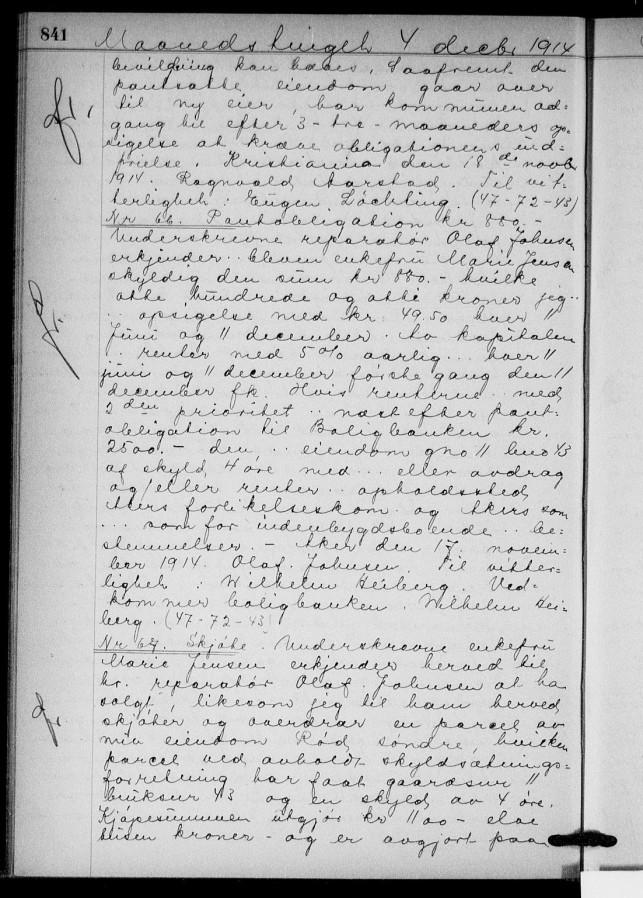 841 Maanedstinget 4 decbr 1914
bevilgning kan haves. Saafremt den
pantsatte eiendom gaar over
til ny eier, har kommunen ad=
gang til efter 3 - tre - maaneders op=
sigelse at kræve obligationens ind=
frielse. Kristiania den 18 de novbr
1914. Ragnvald Aarstad. Til vit=
terlighet: Eugen Løchting. (47-72-43)
Nr 66. Pantobligation kr 880.-
Underskrevne reparatør Olaf Johnsen
erkjender .. bleven enkefru Marie Jensen
skyldig den sum kr 880.- hvilke
otte hundrede og otti kroner jeg ..
.. opsigelse med kr. 49.50 hver 11
juni og 11 december. Av kapitalen
.. renter med 5% aarlig ... hver 11
juni og 11 december første gang den 11
december fk. Hvis renterne .. med
2 den prioritet .. næst efter pant=
obligation til Boligbanken kr.
2500.- den .. eiendom gno 11 bno 43
af skyld 4 øre med ... eller avdrag
og/eller renter .. opholdssted
Akers forlikelseskom. og Akers som
... som for indenbygdsboende .. be=
stemmelser. - Aker den 17. novem=
ber 1914. Olaf Johnsen. Til vitter=
lighet: Wilhelm Heiberg. Ved=
kommer boligbanken. Wilhelm Hei=
berg. (47-72-43)
Nr 67. Skjøte. Underskrevne enkefru
Marie Jensen erkjender herved til
hr. reparatør Olaf Johnsen at ha
solgt, likesom jeg til ham herved
skjøter og overdrar en parcel av
min eiendom Rød søndre, hvilken
parcel ved avholdt skyldsætnings=
forretning har faat gaardsnr 11
bruksnr 43 og en skyld av 4 øre.
Kjøpesummen utgjør kr 1100 - elve
tusen kroner - og er avgjort paa